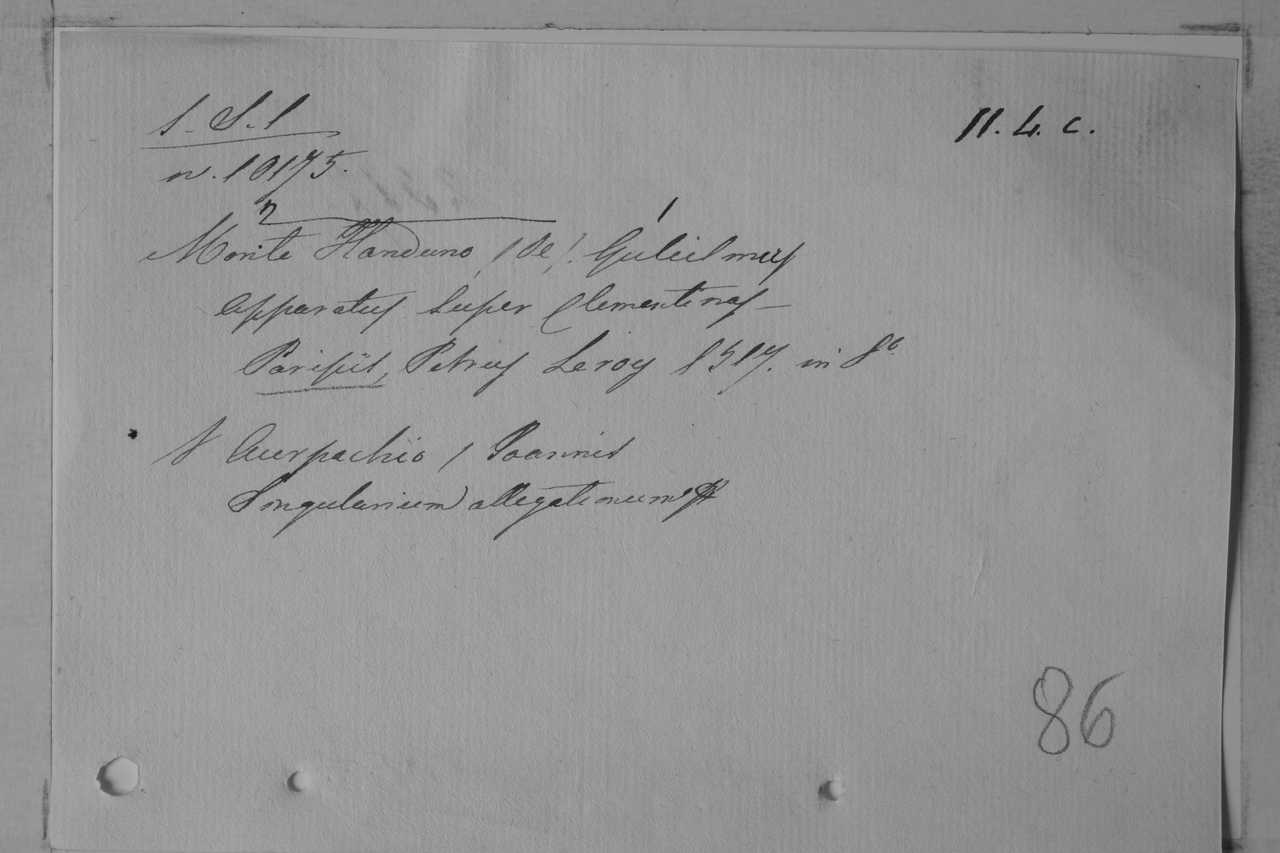 S. S. 1
11. 4. c.
n. 10175.
2 1
Monte Handuno, (De). Guleilmus
Apparatus super Clementinas –
Parisiis, Petrus Leroy 1517. in 8º
Auerpachio / Joannis
Singularium allegationum
86